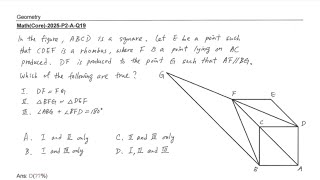 Geometry
Math(Core)-2025-P2-A-Q19
In the figure, ABCD is a square. Let E be a point such
that CDEF is a rhombus, where F is a point lying on BC
produced. DF is produced to the point G such that AF//BG.
Which of the following are true?
I. DF = FG
II. △BFG ~ △DEF
III. ∠ABG + ∠BFD = 180°
A. I and II only
B. I and III only
C. II and III only
D. I, II and III
G
F
E
C
D
B
A
Ans: D(??%)